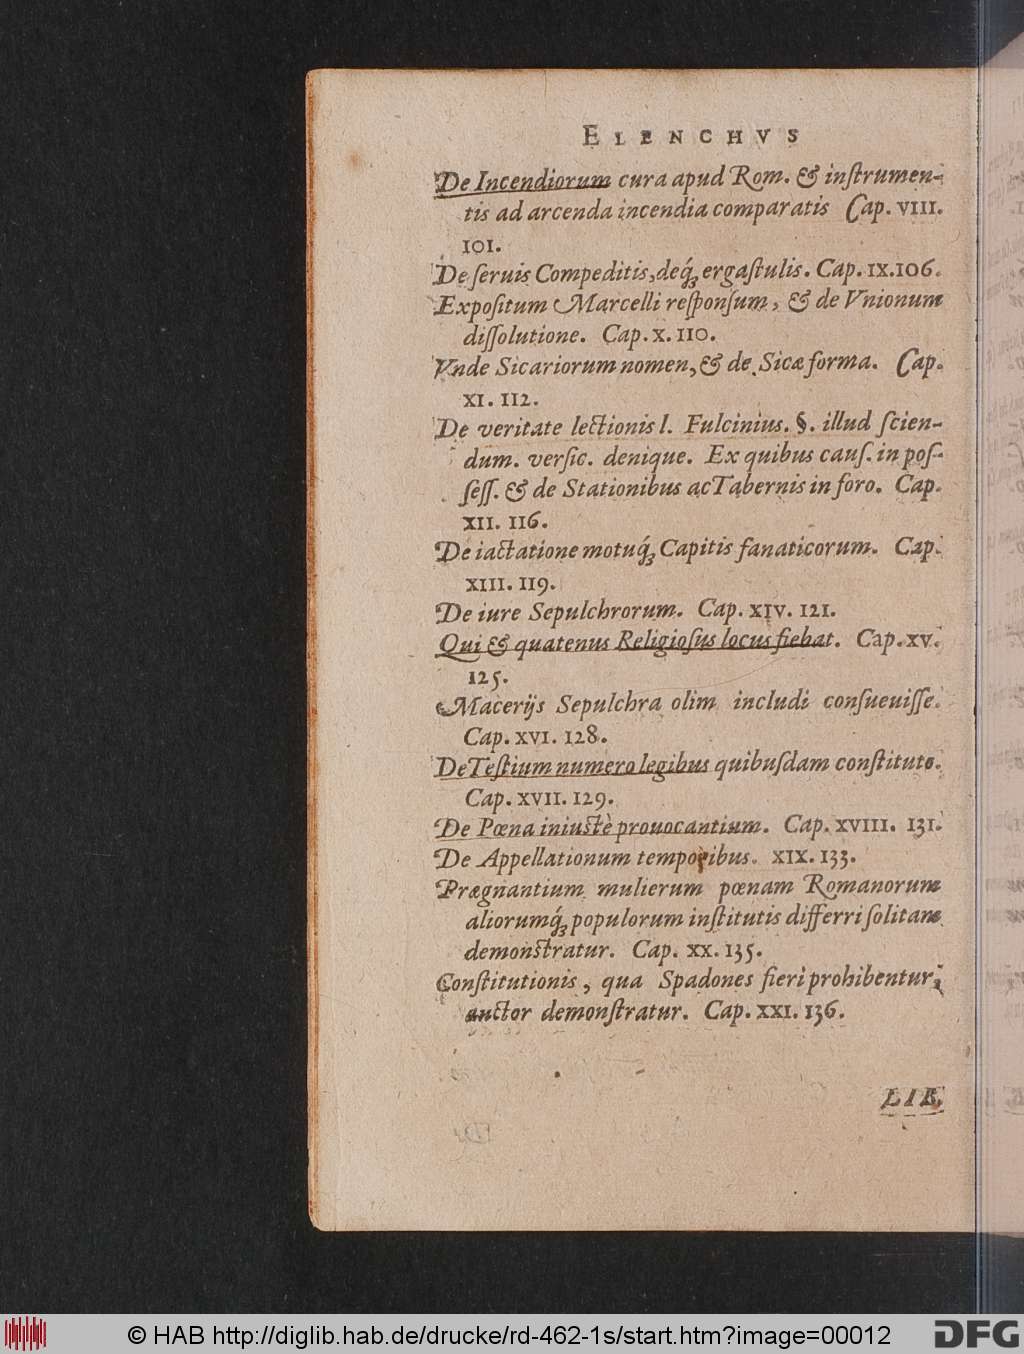 ELENCHVS
De Incendiorum cura apud Rom. & inſtrumen-
tis ad arcenda incendia comparatis Cap. VIII.
101.
De ſeruis Compeditis, deq́ꝫ ergaſtulis. Cap. IX. 106.
Expoſitum Marcelli reſponſum, & de Vnionum
diſſolutione. Cap. X. 110.
Vnde Sicariorum nomen, & de Sicæ forma. Cap.
XI. 112.
De veritate lectionis l. Fulcinius. §. illud ſcien-
dum. verſic. denique. Ex quibus cauſ. in poſ-
ſeſſ. & de Stationibus ac Tabernis in foro. Cap.
XII. 116.
De iactatione motuq́ꝫ Capitis fanaticorum. Cap.
XIII. 119.
De iure Sepulchrorum. Cap. XIV. 121.
Qui & quatenus Religioſus locus fiebat. Cap. XV.
125.
Macerijs Sepulchra olim includi conſueuiſſe.
Cap. XVI. 128.
De Teſtium numero legibus quibuſdam conſtituto.
Cap. XVII. 129.
De Pœna iniuſtè prouocantium. Cap. XVIII. 131.
De Appellationum temporibus. XIX. 133.
Prægnantium mulierum pœnam Romanorum
aliorumq́ꝫ populorum inſtitutis differri ſolitam
demonſtratur. Cap. XX. 135.
Conſtitutionis, qua Spadones fieri prohibentur,
auctor demonſtratur. Cap. XXI. 136.
LIB.
© HAB http://diglib.hab.de/drucke/rd-462-1s/start.htm?image=00012
DFG